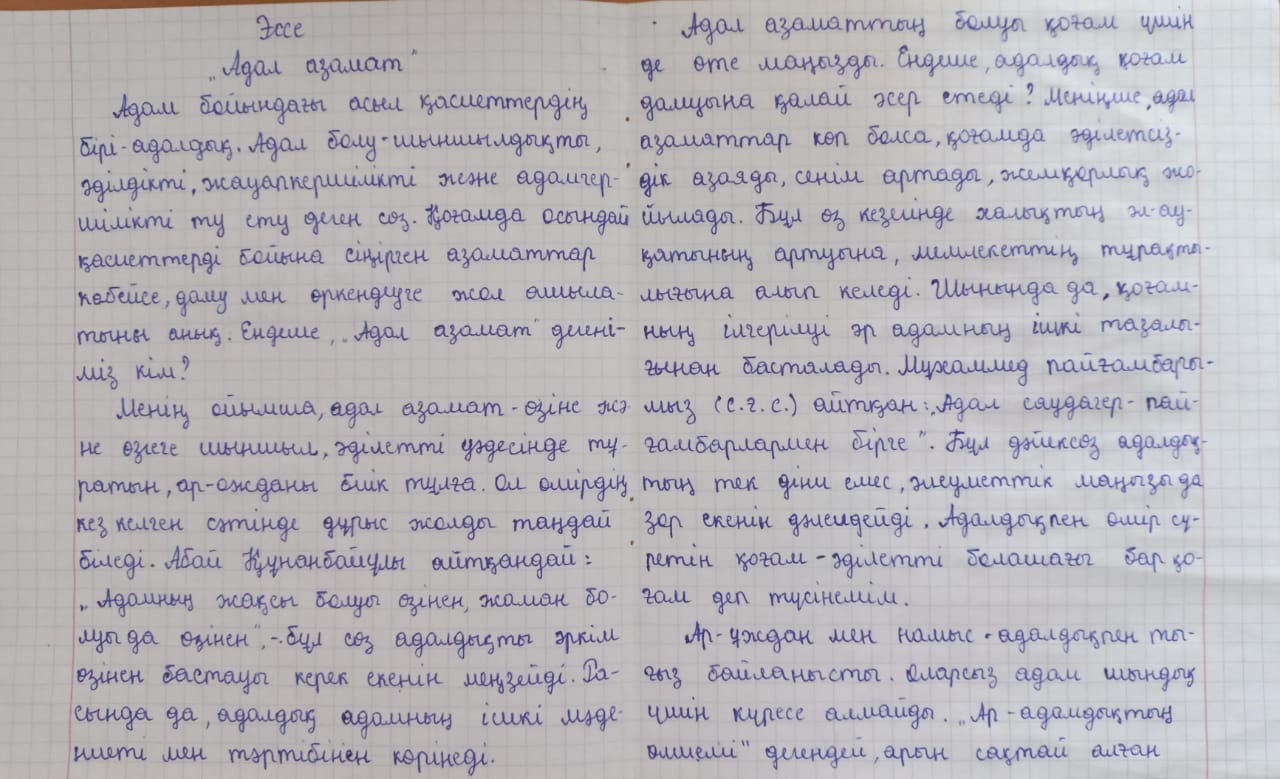 Эссе
„Адал азамат"
Адам бойындағы асыл қасиеттердің
бірі-адалдық. Адал болу-шыншылдықты,
әділдікті, жауапкершілікті және адамгер-
шілікті ту ету деген сөз. Қоғамда осындай
қасиеттерді бойына сіңірген азаматтар
көбейсе, даму мен өркендеуге жол ашыла-
тыны анық. Ендеше, „Адал азамат" дегені-
міз кім?
Менің ойымша, адал азамат - өзіне жә
не өзгеге шыншыл, әділетті уәдесінде тұ-
ратын, ар-ожданы биік тұлға. Ол өмірдің
кез келген сәтінде дұрыс жолды таңдай
біледі. Абай Құнанбайұлы айтқандай:
„Адамның жақсы болуы өзінен, жаман бо-
луы да өзінен", - бұл сөз адалдықты әркім
өзінен бастауы керек екенін меңзейді. Ра-
сында да, адалдық адамның ішкі мәде-
ниеті мен тәртібінен көрінеді.
Адал азаматтың болуы қоғам үшін
де өте маңызды. Ендеше, адалдық қоғам
дамуына қалай әсер етеді? Меніңше, адал
азаматтар көп болса, қоғамда әділетсіз-
дік азаяды, сенім артады, жемқорлық жо-
йылады. Бұл өз кезегінде халықтың әл-ау-
қатының артуына, мемлекеттің тұрақты-
лығына алып келеді. Шынында да, қоғам-
ның ілгерілуі әр адамның ішкі тазалы-
ғынан басталады. Мұхаммед пайғамбары-
мыз (с.ғ.с.) айтқан: „Адал саудагер - пай-
ғамбарлармен бірге". Бұл дәйексөз адалдық-
тың тек діни емес, әлеуметтік маңызы да
зор екенін дәлелдейді. Адалдықпен өмір сү-
ретін қоғам - әділетті болашағы бар қо-
ғам деп түсінемін.
Ар-ұждан мен намыс - адалдықпен ты-
ғыз байланысты. Оларсыз адам шындық
үшін күресе алмайды. „Ар - адамдықтың
өлшемі" дегендей, арын сақтай алған